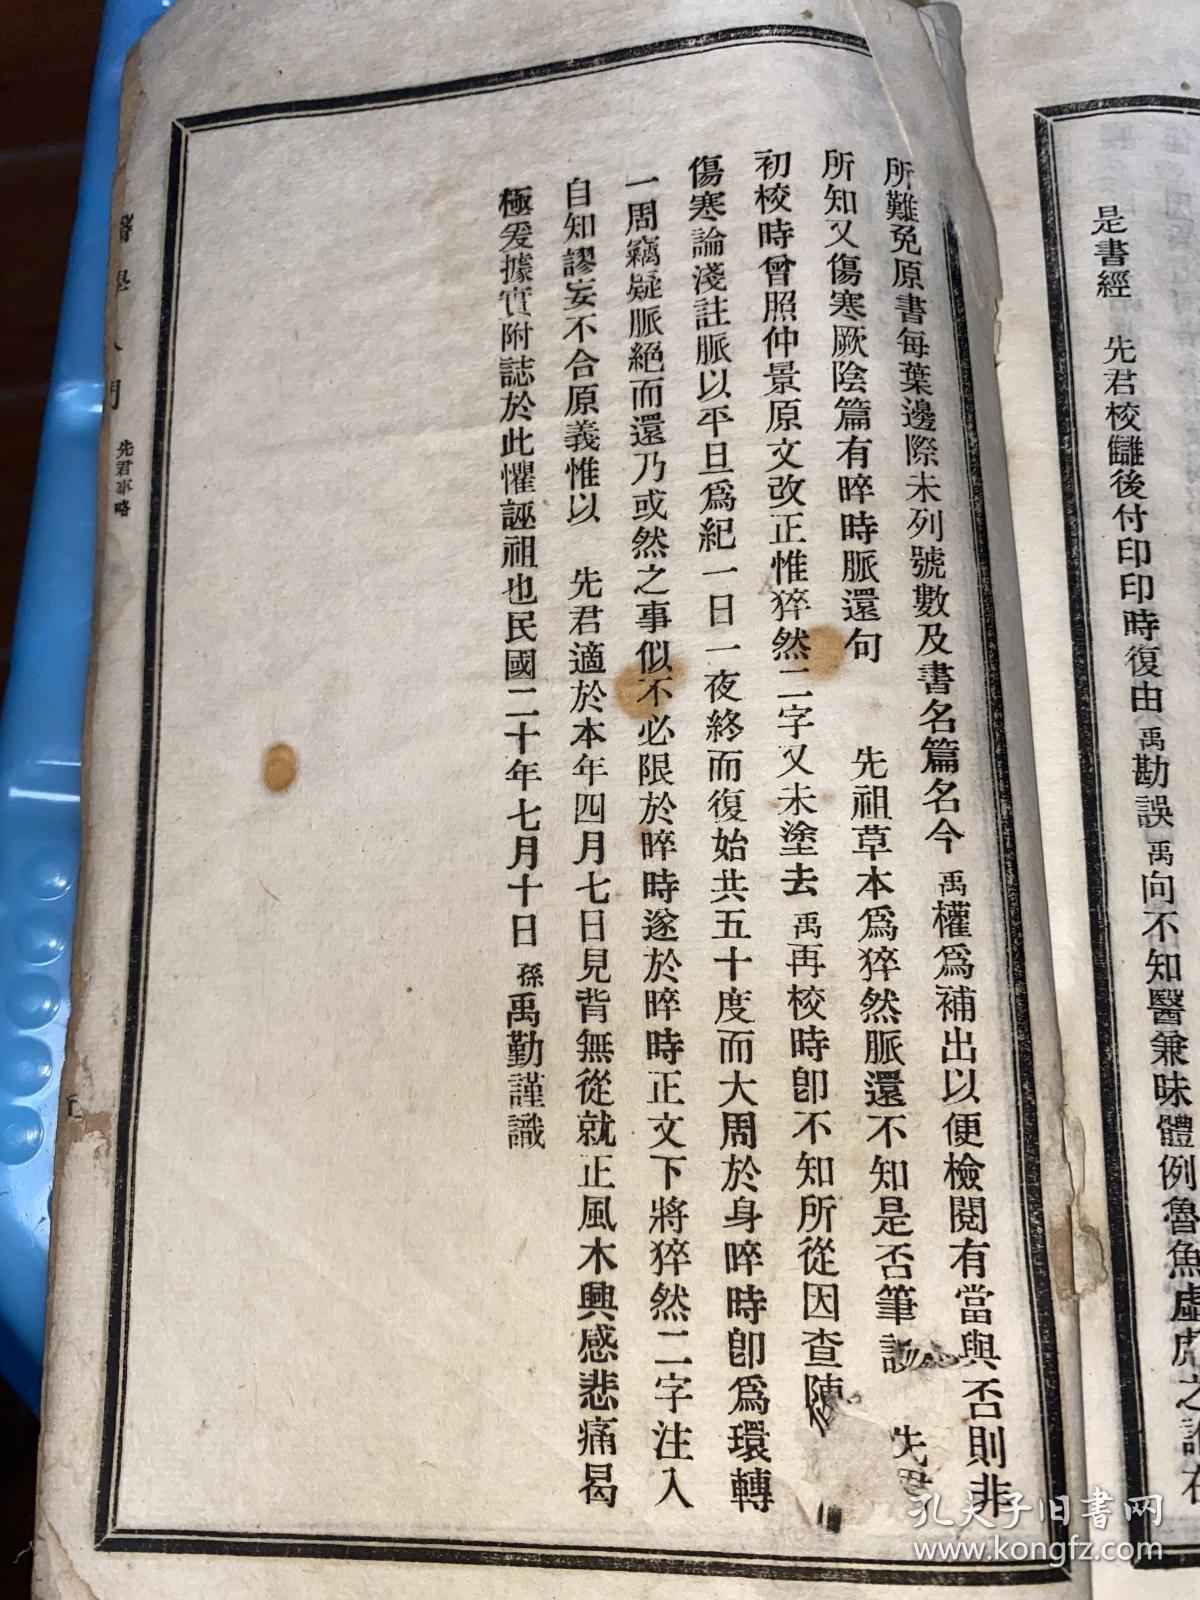 是書經　先君校讎後付印印時復由禹勘誤禹向不知醫兼昧體例魯魚虛虎之誚在
所難免原書每葉邊際未列號數及書名篇名今禹權為補出以便檢閱有當與否則非
所知又傷寒厥陰篇有晬時脈還句　先祖草本為猝然脈還不知是否筆　先君
初校時曾照仲景原文改正惟猝然二字又未塗去禹再校時卽不知所從因查陳
傷寒論淺註脈以平旦為紀一日一夜終而復始共五十度而大周於身晬時卽為環轉
一周竊疑脈絕而還乃或然之事似不必限於晬時遂於晬時正文下將猝然二字注入
自知謬妄不合原義惟以　先君適於本年四月七日見背無從就正風木興感悲痛曷
極爰據實附誌於此懼誣祖也民國二十年七月十日孫禹勤謹識
先君事略
孔夫子旧书网
www.kongfz.com